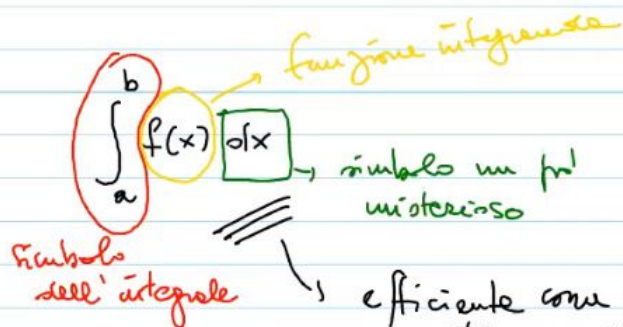 funzione integranda
b
∫ f(x) dx
a
simbolo un po'
misterioso
simbolo
dell'integrale
efficiente come